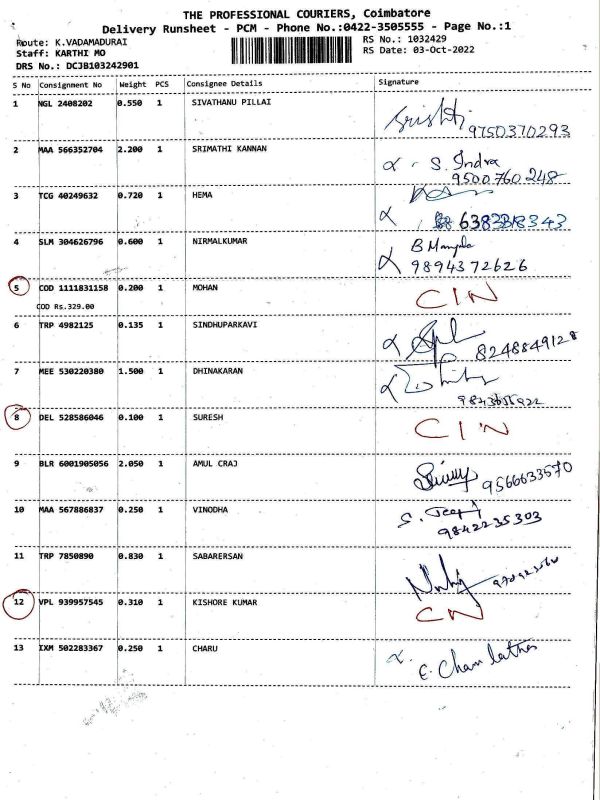 THE PROFESSIONAL COURIERS, Coimbatore
Delivery Runsheet - PCM - Phone No.:0422-3505555 - Page No.:1
Route: K.VADAMADURAI RS No.: 1032429
Staff: KARTHI MO RS Date: 03-Oct-2022
DRS No.: DCJB103242901
S No Consignment No Weight PCS Consignee Details Signature
1 NGL 2408202 0.550 1 SIVATHANU PILLAI
9750370293
2 MAA 566352704 2.200 1 SRIMATHI KANNAN S. Indra
9500760248
3 TCG 40249632 0.720 1 HEMA
4 SLM 304626796 0.600 1 NIRMALKUMAR B
9894372626
5 COD 1111831158 0.200 1 MOHAN CIN
COD Rs.329.00
6 TRP 4982125 0.135 1 SINDHUPARKAVI
8248849128
7 MEE 530220380 1.500 1 DHINAKARAN
8 DEL 528586046 0.100 1 SURESH CIN
9 BLR 6001905056 2.050 1 AMUL CRAJ
9566633570
10 MAA 567886837 0.250 1 VINODHA
9842235303
11 TRP 7850890 0.830 1 SABARERSAN
12 VPL 939957545 0.310 1 KISHORE KUMAR CN
13 IXM 502283367 0.250 1 CHARU